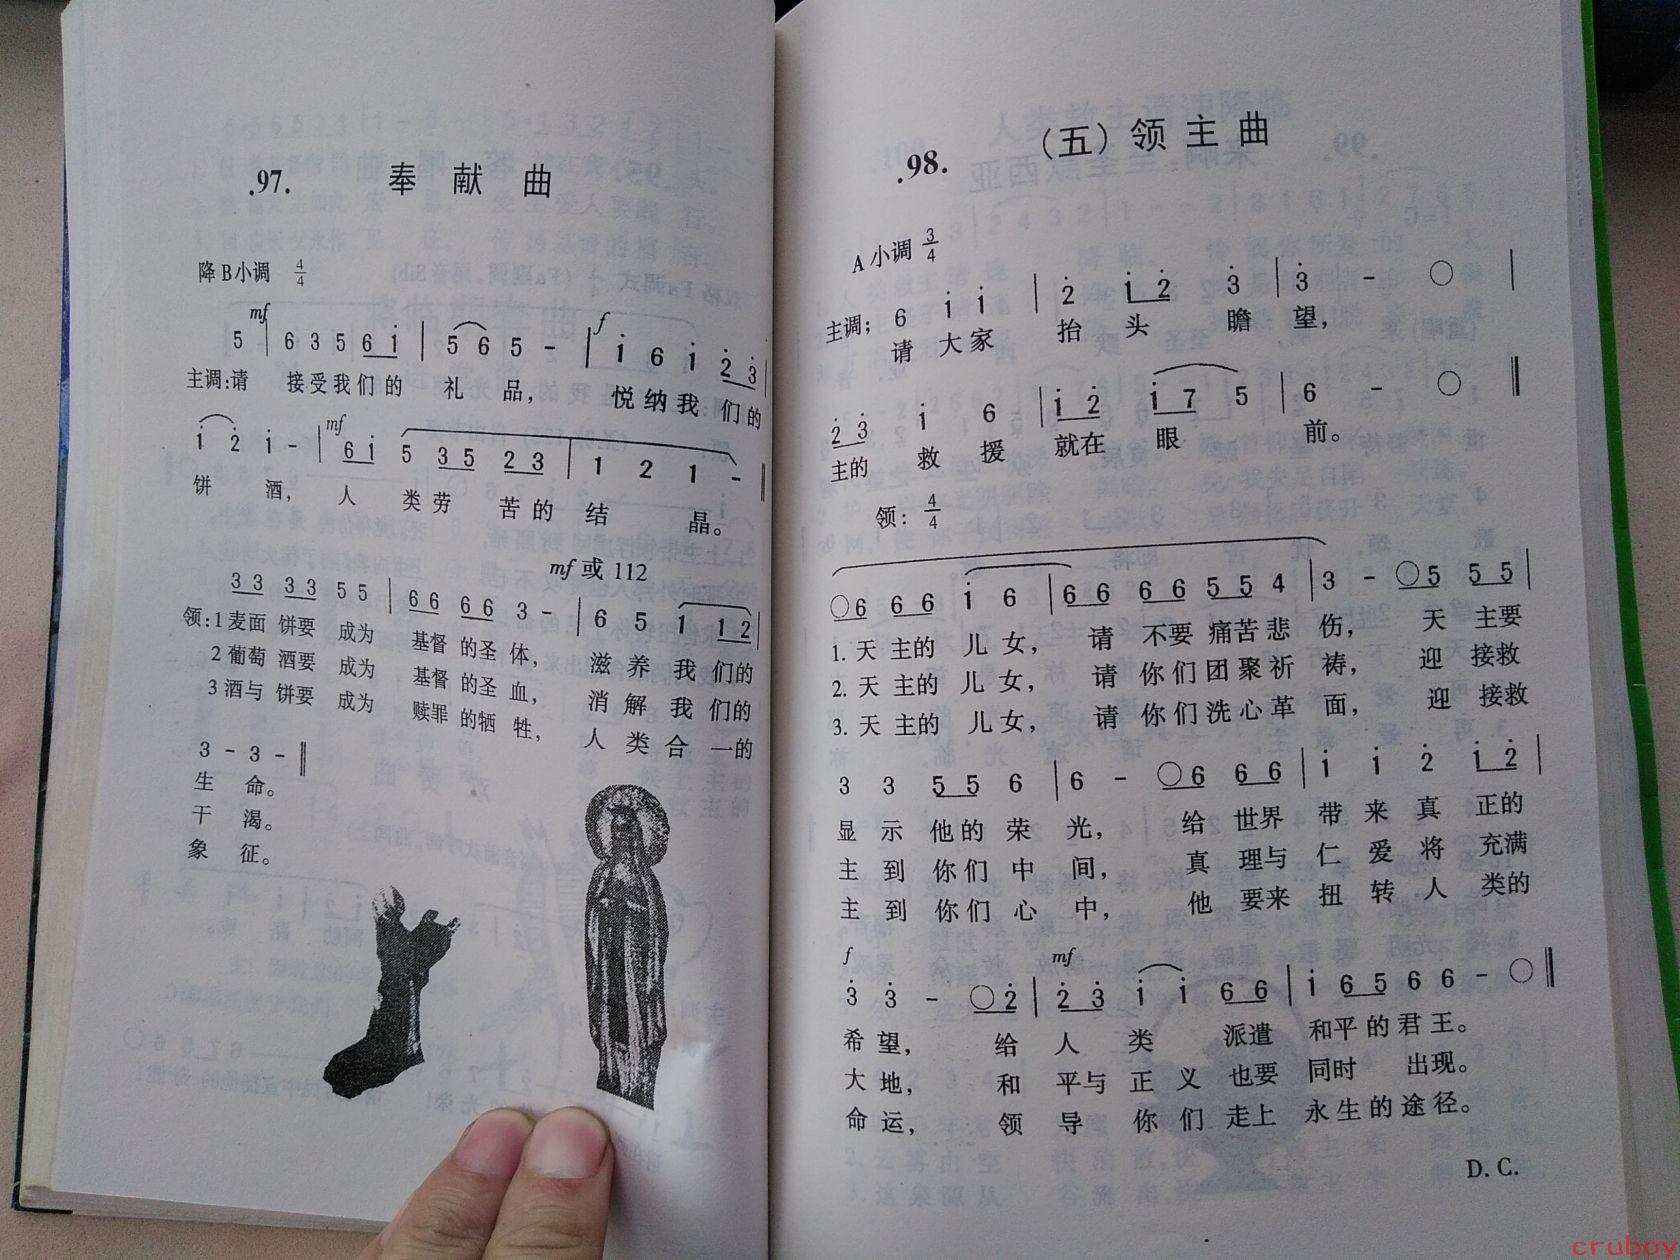 .97. 奉 献 曲
降B小调 4/4
mf f
5 | 6 3 5 6 i | 5 6 5 - | i 6 i 2 3 |
主调:请 接受我们的 礼 品, 悦纳我们的
mf
i 2 i - | 6 i 5 3 5 2 3 | 1 2 1 - ‖
饼 酒, 人 类劳 苦的 结 晶。
mf或112
3 3 3 3 5 5 | 6 6 6 6 3 - | 6 5 1 1 2 |
领:1麦面 饼要 成为 基督 的圣 体, 滋 养 我 们的
2葡萄 酒要 成为 基督 的圣 血, 消 解 我 们的
3酒与 饼要 成为 赎罪 的牺 牲, 人 类 合 一的
3 - 3 - ‖
生 命。
干 渴。
象 征。
.98. (五)领主曲
A小调 3/4
6 i i | 2 i 2 3 | 3 - ○ |
主调; 请 大家 抬 头 瞻 望,
2 3 i 6 | i 2 i 7 5 | 6 - ○ ‖
主的 救 援 就在 眼 前。
领: 4/4
○6 6 6 i 6 | 6 6 6 6 5 5 4 | 3 - ○5 5 5 |
1. 天 主的 儿 女, 请 不要 痛苦 悲 伤, 天 主要
2. 天 主的 儿 女, 请 你们 团聚 祈 祷, 迎 接救
3. 天 主的 儿 女, 请 你们 洗心 革 面, 迎 接救
3 3 5 5 6 | 6 - ○6 6 6 | i i 2 i 2 |
显 示 他的 荣 光, 给 世界 带 来 真 正的
主 到 你们 中 间, 真 理与 仁 爱 将 充满
主 到 你们 心 中, 他 要来 扭 转 人 类的
f mf
3 3 - ○2 | 2 3 i i 6 6 | i 6 5 6 6 - ○ ‖
希 望, 给 人 类 派遣 和平 的 君 王。
大 地, 和 平与 正 义 也要 同时 出现。
命 运, 领 导 你 们 走上 永生 的 途 径。
D. C.
cruboy